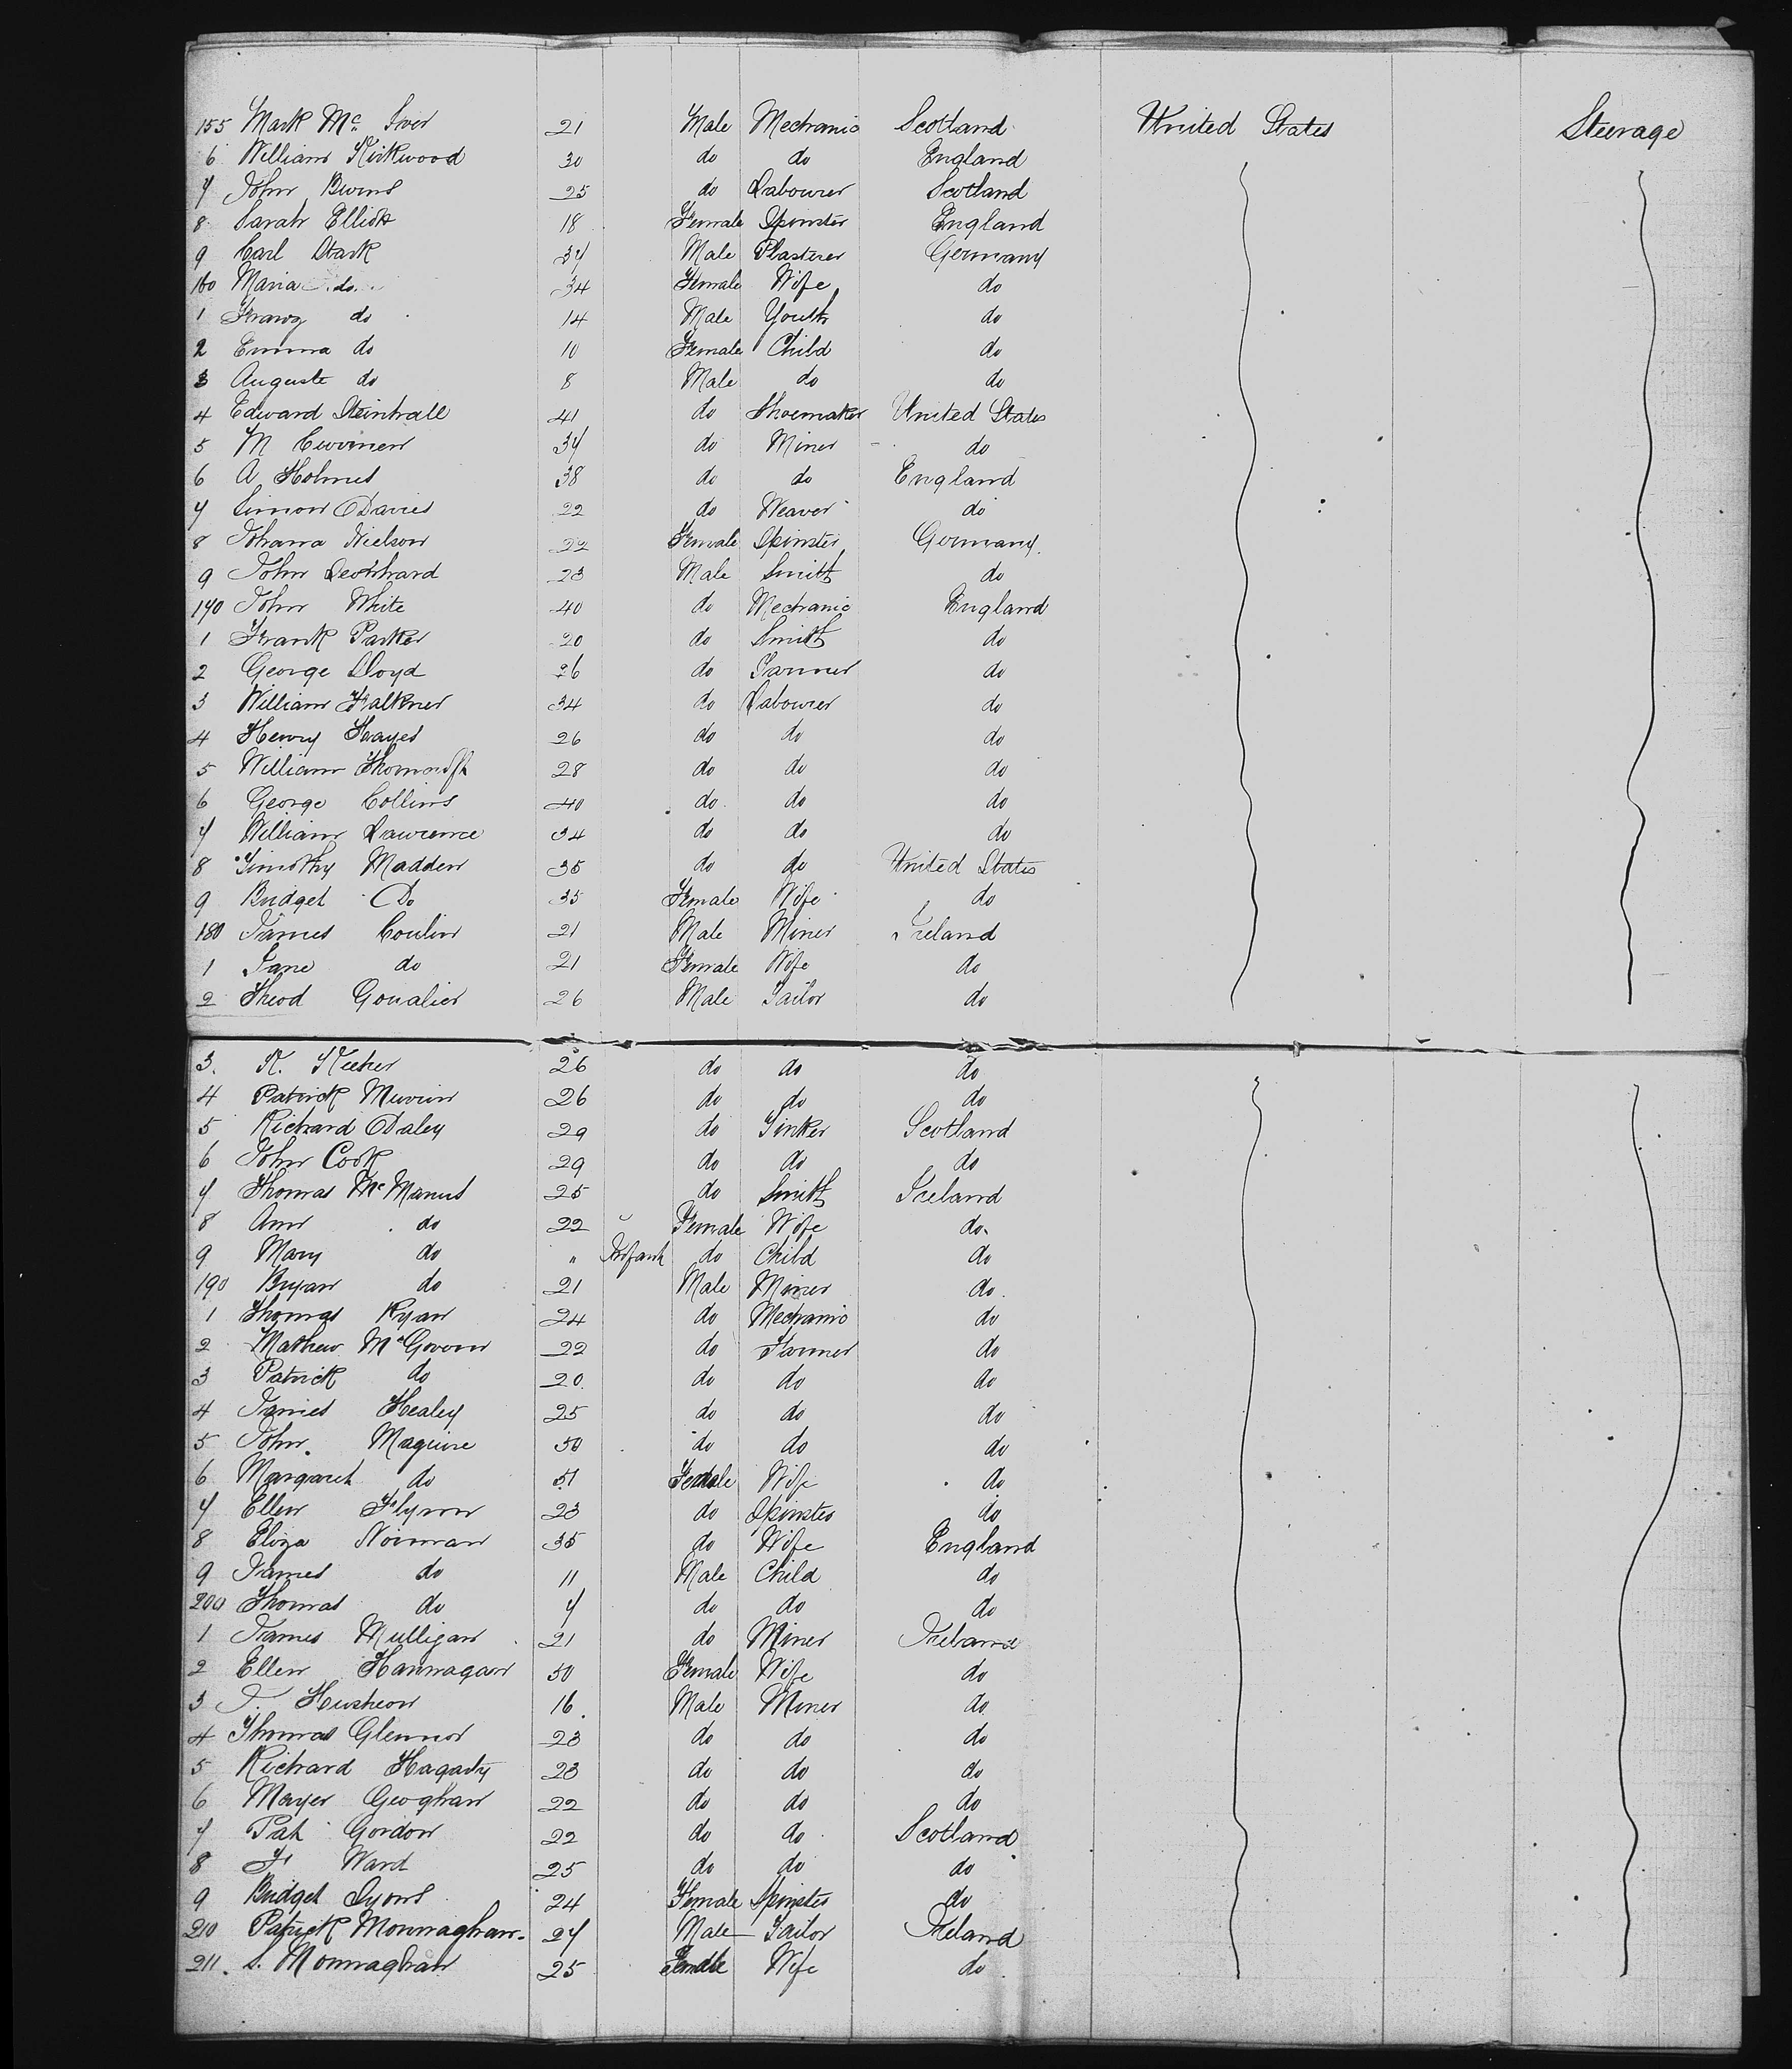 155 Mark Mc Iver 21 Male Mechanic Scotland United States Steerage
6 William Kirkwood 30 do do England
7 John Burns 25 do Labourer Scotland
8 Sarah Elliott 18 Female Spinster England
9 Carl Stark 37 Male Plasterer Germany
160 Maria do 34 Female Wife do
1 Franz do 14 Male Youth do
2 Emma do 10 Female Child do
3 Auguste do 8 Male do do
4 Edward 41 do Shoemaker United States
5 M 37 do Miner do
6 A Holmes 38 do do England
7 Simon Davies 22 do Weaver do
8 Johana Nielson 22 Female Spinster Germany
9 John Leonhard 23 Male Smith do
170 John White 40 do Mechanic England
1 Frank Parker 20 do Smith do
2 George Lloyd 26 do do
3 William Falkner 34 do Labourer do
4 Henry Hayes 26 do do do
5 William 28 do do do
6 George Collins 40 do do do
7 William Lawrence 34 do do do
8 Timothy Madden 35 do do United States
9 Bridget Do 35 Female Wife do
180 James Conlin 21 Male Miner Ireland
1 Jane do 21 Female Wife do
2 Theod Goualier 26 Male Tailor do
3. K. 26 do do do
4 Patrick 26 do do do
5 Richard Daley 29 do Tinker Scotland
6 John Cook 29 do do do
7 Thomas Mc Manus 25 do Smith Ireland
8 Ann do 22 Female Wife do
9 Mary do " Infant do Child do
190 Bryan do 21 Male Miner do
1 Thomas Ryan 24 do Mechanic do
2 Mathew McGovern 22 do Farmer do
3 Patrick do 20 do do do
4 James Healey 25 do do do
5 John Maguire 50 do do do
6 Margaret do 51 Female Wife do
7 Ellen Flynn 23 do Spinster do
8 Eliza Norman 35 do Wife England
9 James do 11 Male Child do
200 Thomas do 7 do do do
1 James Mulligan 21 do Miner Ireland
2 Ellen Hannagan 50 Female Wife do
3 16 Male Miner do
4 Thomas Glennor 23 do do do
5 Richard Hagady 23 do do do
6 Mayer Geoghan 22 do do do
7 Pat Gordon 22 do do Scotland
8 F Ward 25 do do do
9 Bridget Lyons 24 Female Spinster do
210 Patrick Monnaghan 27 Male Tailor Ireland
211. S. Monnaghan 25 Female Wife do